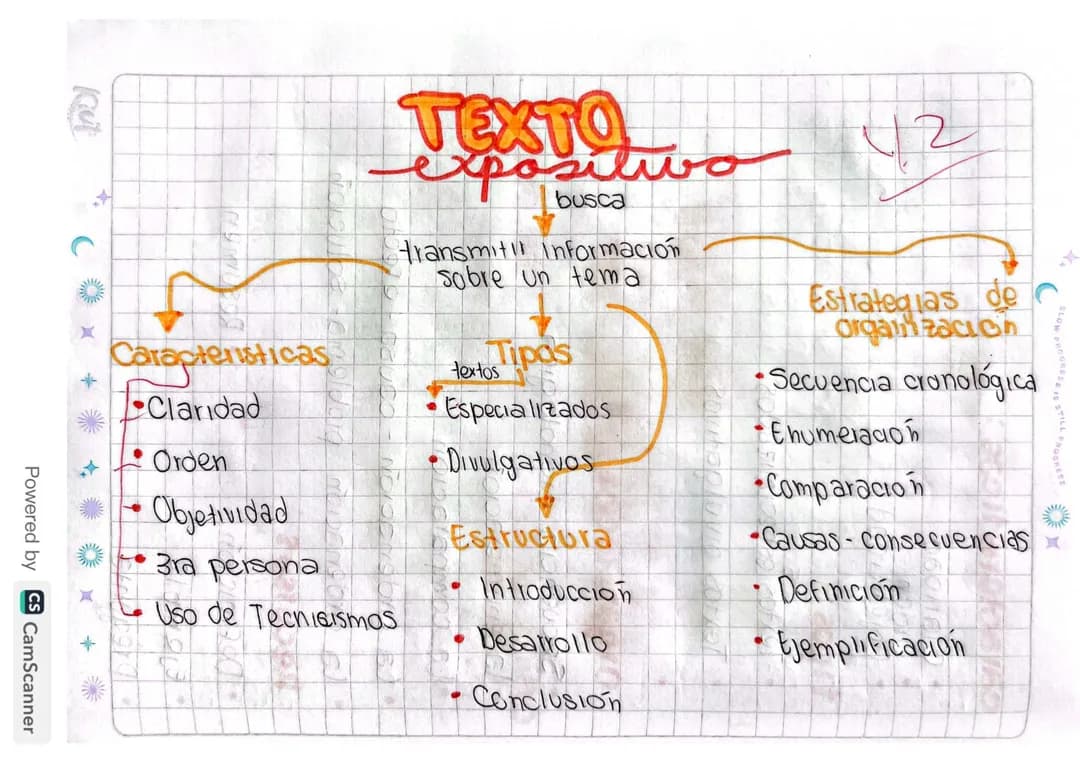 TEXTO
expositivo
4.2
busca
transmitir información
sobre un tema
Características
• Claridad
• Orden
• Objetividad
• 3ra persona
• Uso de Tecnisismos
Tipos
textos
• Especializados
• Divulgativos
Estructura
• Introducción
• Desarrollo
• Conclusión
Estrategias de
organización
• Secuencia cronológica
• Enumeración
• Comparación
• Causas - consecuencias
• Definición
• Ejemplificación
SLOW PROGRESS IS STILL PROGRESS
Powered by CS CamScanner